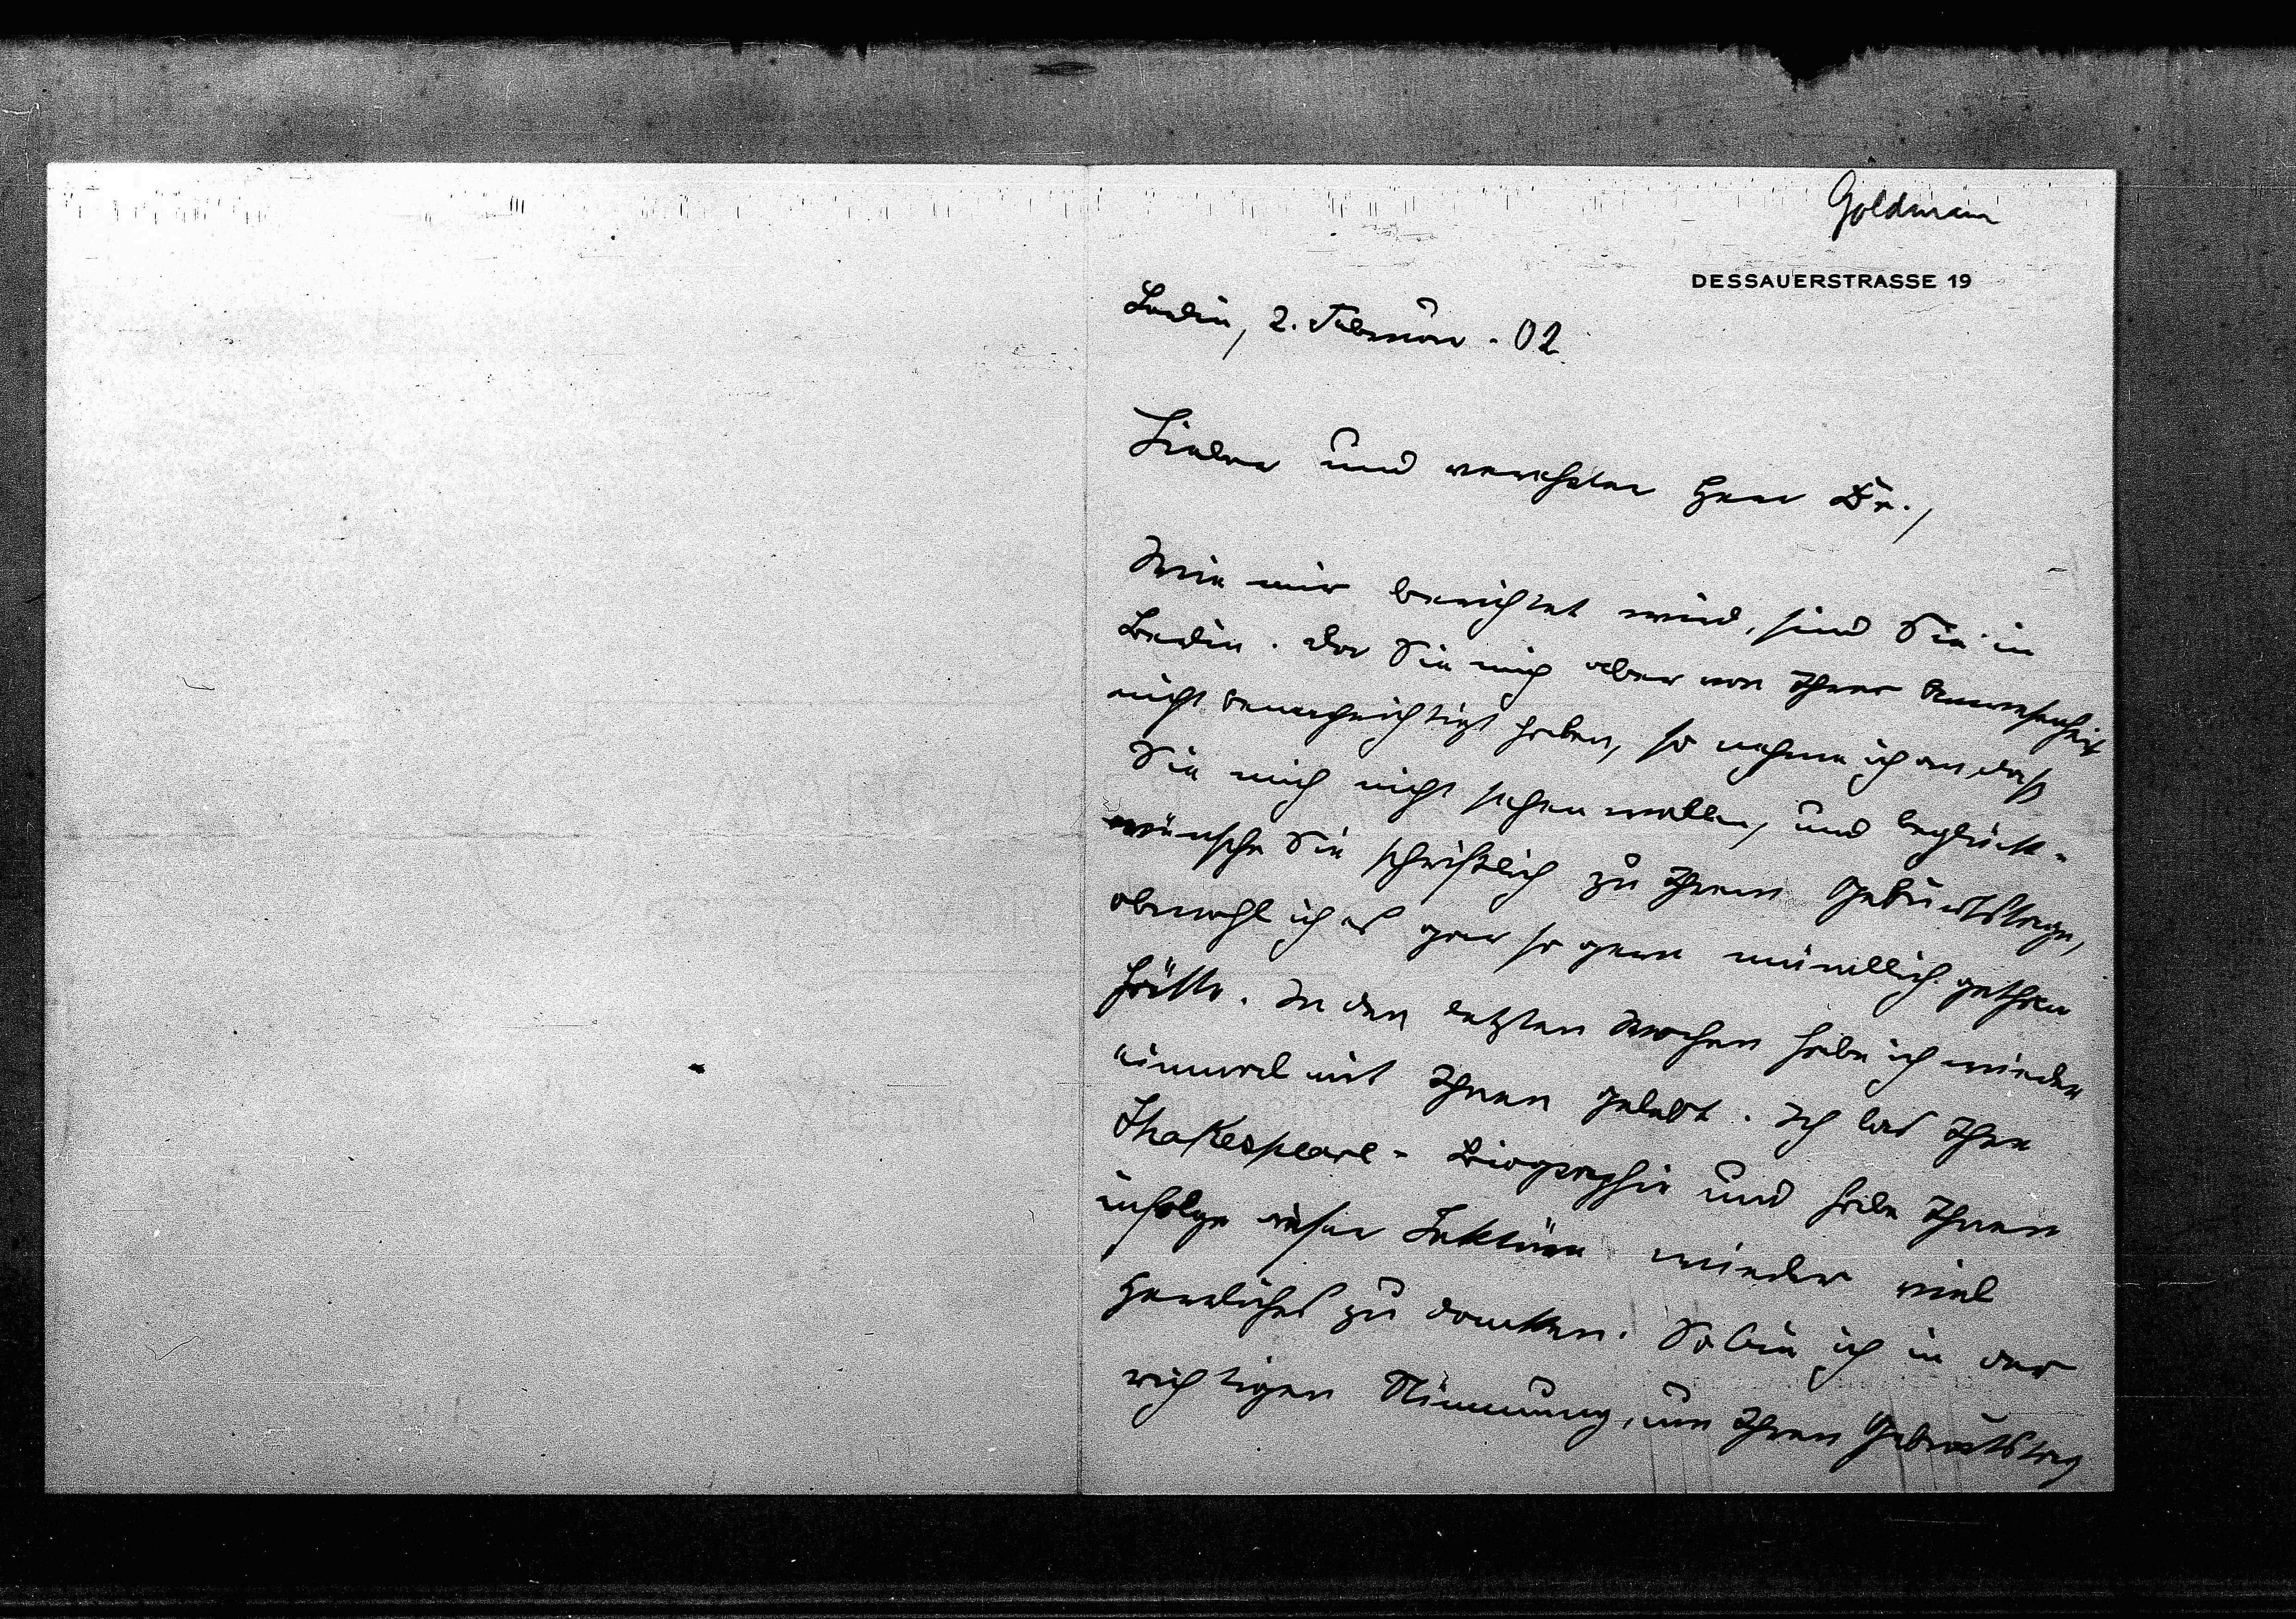 Goldmann
DESSAUERSTRASSE 19
Berlin, 2. Februar. 02.
Lieber und verehrter Herr Dr.,
Wie mir berichtet wird, sind Sie in
Berlin. Da Sie mich aber von Ihrer Anwesenheit
nicht benachrichtigt haben, so nehme ich an, daß
Sie mich nicht sehen wollen, und beglück-
wünsche Sie schriftlich zu Ihrem Geburtstage,
obwohl ich es gar so gern mündlich gethan
hätte. In den letzten Wochen habe ich wieder
einmal mit Ihnen gelebt. Ich las Ihre
Shakespeare-Biographie und habe Ihnen
infolge dieser Lektüre wieder viel
Herrliches zu danken. So bin ich in der
richtigen Stimmung, um Ihren Geburtstag